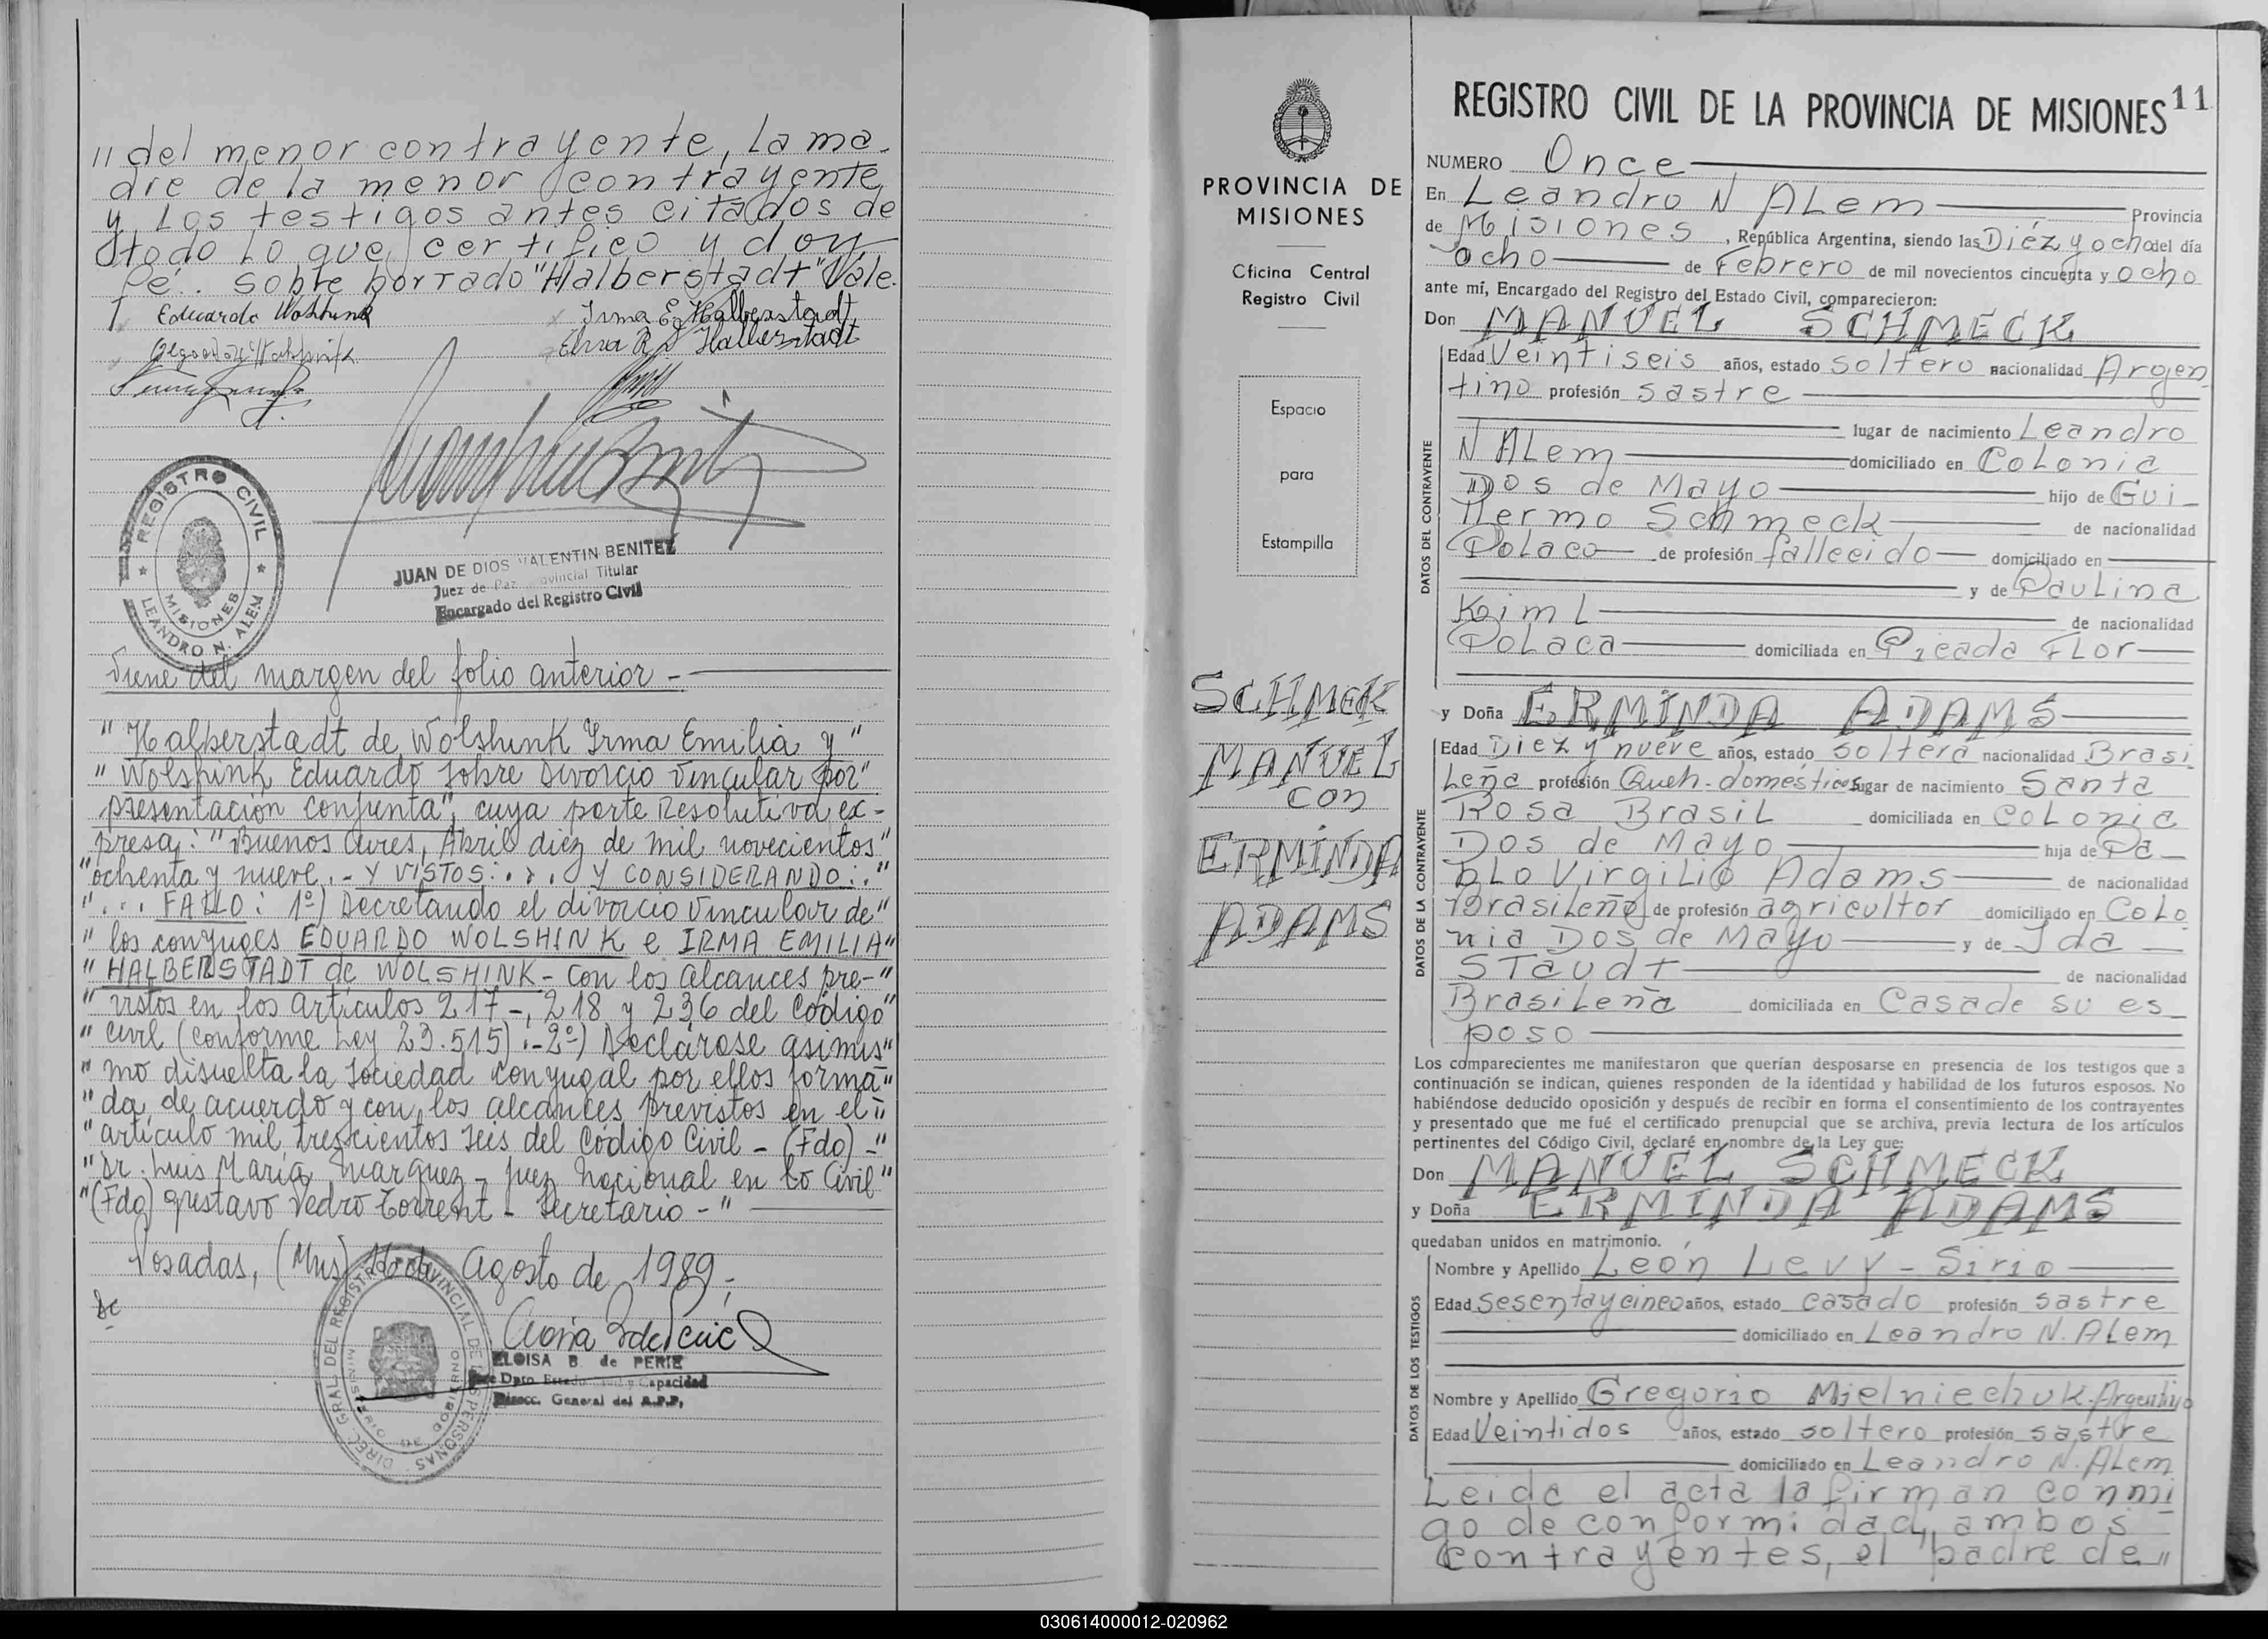 11 del menor contrayente, La ma-
dre de la menor contrayente
y Los testigos antes citados de
todo Lo que certifico y doy
Fé.. sobre borrado "Halberstadt" Vale.
Eduardo Wolshink
Irma E. Halberstadt
Elsa R. Halberstadt
REGISTRO CIVIL
MISIONES
LEANDRO N. ALEM
JUAN DE DIOS VALENTIN BENITEZ
Juez de Paz Provincial Titular
Encargado del Registro Civil
Viene del margen del folio anterior -
"Halberstadt de Wolshink Irma Emilia y"
"Wolshink Eduardo sobre Divorcio Vincular por"
presentación conjunta", cuya parte Resolutiva ex-
presa: "Buenos Aires, Abril diez de mil novecientos"
"ochenta y nueve.- Y VISTOS:... Y CONSIDERANDO:.."
"... FALLO: 1º) Decretando el divorcio Vincular de"
"los conyuges EDUARDO WOLSHINK e IRMA EMILIA"
"HALBERSTADT de WOLSHINK - con los alcances pre-"
"vistos en los artículos 217 -, 218 y 236 del Código"
"Civil (conforme Ley 23.515).-2º) Declárase asimis"
"mo disuelta la sociedad conyugal por ellos forma"
"da, de acuerdo y con los alcances previstos en el"
"artículo mil trescientos seis del Código Civil - (Fdo) -"
"Dr. Luis María Marquez - Juez Nacional en lo Civil"
"(Fdo) Gustavo Pedro Torrent - Secretario -"
Posadas, (Mns) 16 de Agosto de 1989.-
DIREC. GRAL DEL REGISTRO PROVINCIAL DE LAS PERSONAS
MINISTERIO DE GOBIERNO
ELOISA B. de PERIE
Jefe Dpto. Estado Civil y Capacidad
Direcc. General del R.P.P.
PROVINCIA DE
MISIONES
Oficina Central
Registro Civil
Espacio
para
Estampilla
SCHMEK
MANUEL
con
ERMINDA
ADAMS
REGISTRO CIVIL DE LA PROVINCIA DE MISIONES 11
NUMERO Once
En Leandro N ALem Provincia
de Misiones, República Argentina, siendo las Diéz y ocho del día
ocho de Febrero de mil novecientos cincuenta y ocho
ante mí, Encargado del Registro del Estado Civil, comparecieron:
Don MANUEL SCHMECK
DATOS DEL CONTRAYENTE
Edad Veintiseis años, estado soltero nacionalidad Argen
tino profesión sastre
lugar de nacimiento Leandro
N ALem domiciliado en Colonia
Dos de Mayo hijo de Gui-
llermo Schmeck de nacionalidad
Polaco de profesión fallecido domiciliado en
y de Paulina
Keiml de nacionalidad
Polaca domiciliada en Picada Flor
y Doña ERMINDA ADAMS
DATOS DE LA CONTRAYENTE
Edad Diez y nueve años, estado soltera nacionalidad Brasi
Leña profesión Queh. domésticos lugar de nacimiento Santa
Rosa Brasil domiciliada en Colonia
Dos de Mayo hija de Pa-
blo Virgilio Adams de nacionalidad
Brasileño de profesión agricultor domiciliado en Colo
nia Dos de Mayo y de Ida
Staudt de nacionalidad
Brasileña domiciliada en Casa de su es-
poso
Los comparecientes me manifestaron que querían desposarse en presencia de los testigos que a
continuación se indican, quienes responden de la identidad y habilidad de los futuros esposos. No
habiéndose deducido oposición y después de recibir en forma el consentimiento de los contrayentes
y presentado que me fué el certificado prenupcial que se archiva, previa lectura de los artículos
pertinentes del Código Civil, declaré en nombre de la Ley que:
Don MANUEL SCHMECK
y Doña ERMINDA ADAMS
quedaban unidos en matrimonio.
DATOS DE LOS TESTIGOS
Nombre y Apellido León Levy - Sirio
Edad Sesenta y cinco años, estado casado profesión sastre
domiciliado en Leandro N. ALem
Nombre y Apellido Gregorio Mielniechuk. Argentino
Edad Veintidos años, estado soltero profesión sastre
domiciliado en Leandro N. ALem
Leida el acta la firman conmi
go de conformidad, ambos
contrayentes, el padre de"
030614000012-020962